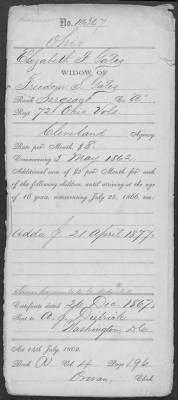 Ohio
Elizabeth F. Gates
WIDOW OF
Freedom S. Gates
Rank Sergeant Co. "A"
Reg. 72d Ohio Vols.
Cleveland Agency.
Rate per Month, $8.
Commencing 3 May 1862.
Additional sum of $2 per Month for each
of the following children, until arriving at the age
of 16 years, commencing July 25, 1866, viz:
Adda J. 21 April 1877.
Certificate dated 26 Dec. 1867.
Sent to A. J. Dietrick
Washington D.C.
Act 14th July, 1862.
Book Vol. Page 196
Clerk